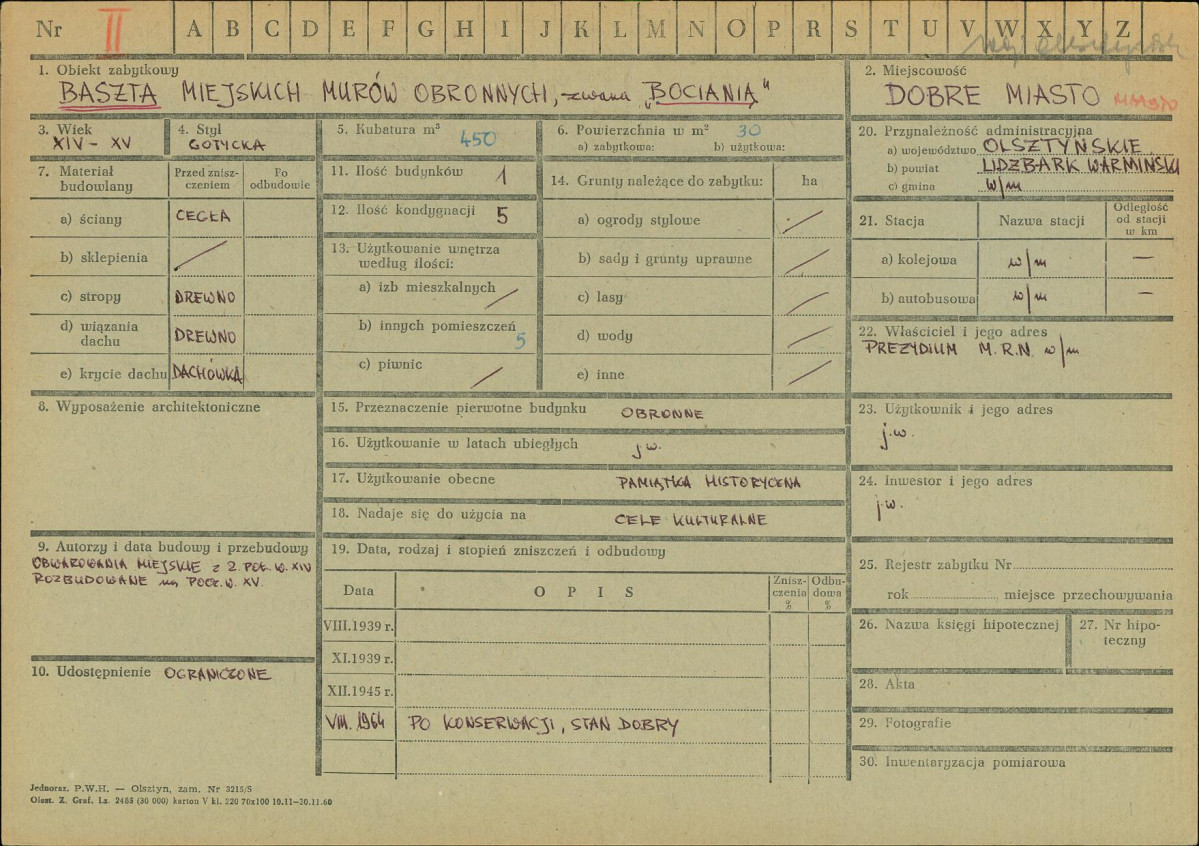 Nr II A B C D E F G H I J K L M N O P R S T U V W X Y Z
1. Obiekt zabytkowy
BASZTA MIEJSKICH MURÓW OBRONNYCH, zwana „BOCIANIĄ"
2. Miejscowość
DOBRE MIASTO MIASTO
3. Wiek
XIV – XV
4. Styl
GOTYCKA
5. Kubatura m³ 450
6. Powierzchnia w m² 30
a) zabytkowa: b) użytkowa:
7. Materiał budowlany
Przed znisz-
czeniem
Po
odbudowie
a) ściany CEGŁA
b) sklepienia /
c) stropy DREWNO
d) wiązania
dachu DREWNO
e) krycie dachu DACHÓWKA
8. Wyposażenie architektoniczne
9. Autorzy i data budowy i przebudowy
OBWAROWANIA MIEJSKIE z 2. POŁ. W. XIV
ROZBUDOWANE na POCZ. W. XV.
10. Udostępnienie OGRANICZONE
11. Ilość budynków 1
12. Ilość kondygnacji 5
13. Użytkowanie wnętrza
według ilości:
a) izb mieszkalnych /
b) innych pomieszczeń 5
c) piwnic /
14. Grunty należące do zabytku: ha
a) ogrody stylowe /
b) sady i grunty uprawne /
c) lasy /
d) wody /
e) inne /
15. Przeznaczenie pierwotne budynku OBRONNE
16. Użytkowanie w latach ubiegłych jw.
17. Użytkowanie obecne PAMIĄTKA HISTORYCZNA
18. Nadaje się do użycia na CELE KULTURALNE
19. Data, rodzaj i stopień zniszczeń i odbudowy
Data O P I S
Znisz-
czenia
%
Odbu-
dowa
%
VIII.1939 r.
XI.1939 r.
XII.1945 r.
VIII. 1964 PO KONSERWACJI, STAN DOBRY
20. Przynależność administracyjna
a) województwo OLSZTYŃSKIE
b) powiat LIDZBARK WARMIŃSKI
c) gmina w/m
21. Stacja Nazwa stacji
Odległość
od stacji
w km
a) kolejowa w/m —
b) autobusowa w/m —
22. Właściciel i jego adres
PREZYDIUM M.R.N. w/m
23. Użytkownik i jego adres
j.w.
24. Inwestor i jego adres
j.w.
25. Rejestr zabytku Nr
rok miejsce przechowywania
26. Nazwa księgi hipotecznej
27. Nr hipo-
teczny
28. Akta
29. Fotografie
30. Inwentaryzacja pomiarowa
Jednoraz. P.W.H. — Olsztyn, zam. Nr 3215/S
Olszt. Z. Graf. Lz. 2488 (30 000) karton V kl. 220 70x100 10.11—30.11.60